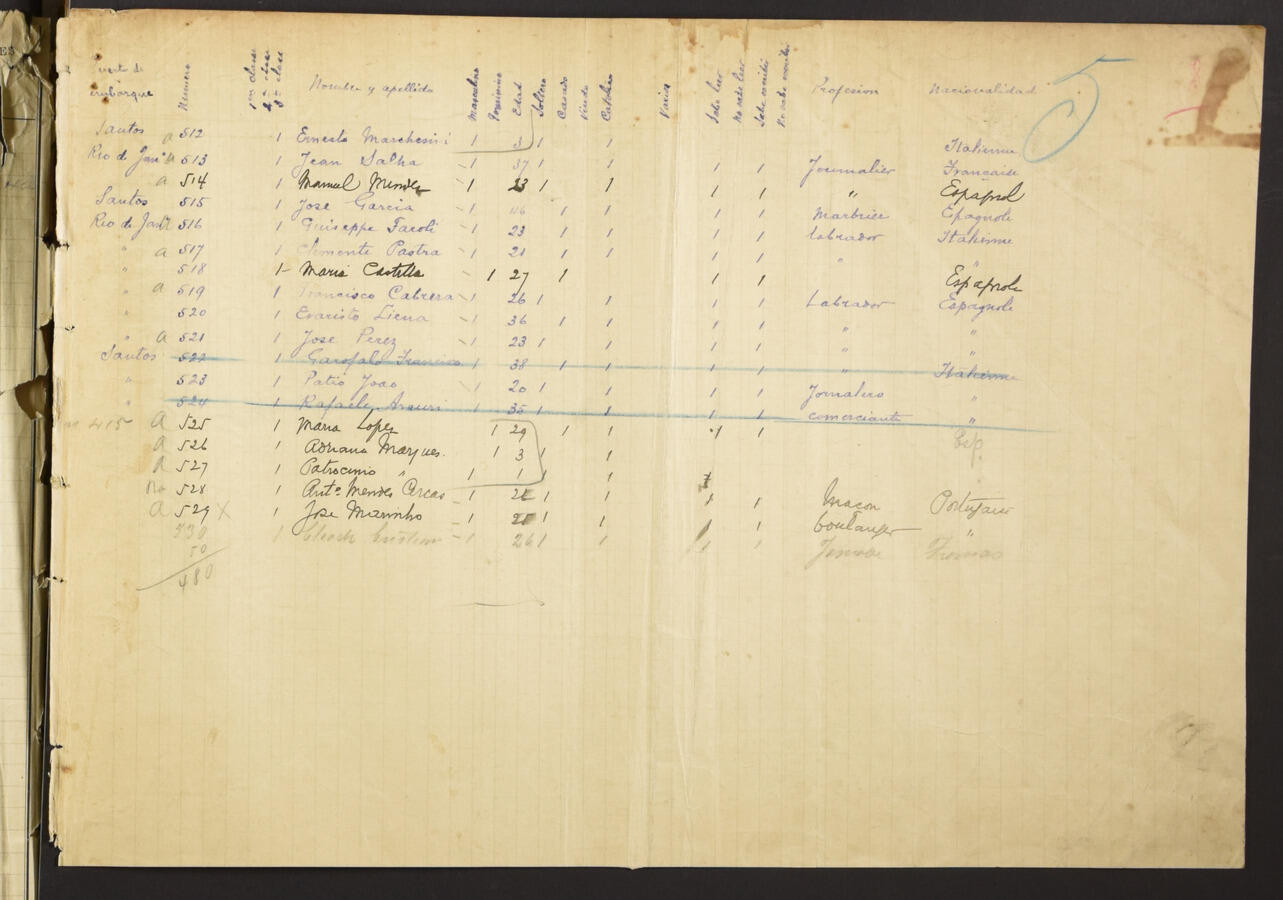 Puerto de embarque Numero 1ra clase 2da clase 3ra clase Nombre y apellido Masculino Femenino Edad Soltero Casado Viudo Catolico Varias Sabe leer No sabe leer Sabe escribir No sabe escribir Profesion Nacionalidad 5
Santos a 512 1 Ernesto Marchesini 1 3 1 1 Italienne
Rio de Jan° a 513 1 Jean Salha 1 37 1 1 1 1 Journalier Française
a 514 1 Manuel Mendez 1 23 1 1 1 1 " Espagnol
Santos 515 1 Jose Garcia 1 46 1 1 1 1 Marbrier Epagnole
Rio de Jan° 516 1 Guiseppe Faroli 1 23 1 1 1 1 Labrador Italienne
" a 517 1 Clemente Pastra 1 21 1 1 1 1 " "
" 518 1 Maria Castilla 1 27 1 1 1 Espagnole
" a 519 1 Francisco Cabrera 1 26 1 1 1 1 Labrador Espagnole
" 520 1 Evaristo Liena 1 36 1 1 1 1 " "
" a 521 1 Jose Perez 1 23 1 1 1 1 " "
Santos 522 1 Garofalo Francisco 1 38 1 1 1 1 " Italienne
" 523 1 Patio Joao 1 20 1 1 1 1 Jornalero "
" 524 1 Rafaele 1 35 1 1 1 1 comerciante "
415 A 525 1 Maria Lopez 1 29 1 1 1 1 Esp.
A 526 1 Adriana Marques. 1 3 1
A 527 1 Patrocinio " 1 1 1 1
No 528 1 Ant° Mendes 1 1 1 1 1 Maçon Portugais
A 529 X 1 Jose Marinho 1 1 1 1 1 boulanger "
530 1 1 26 1 1 1 1
50
480